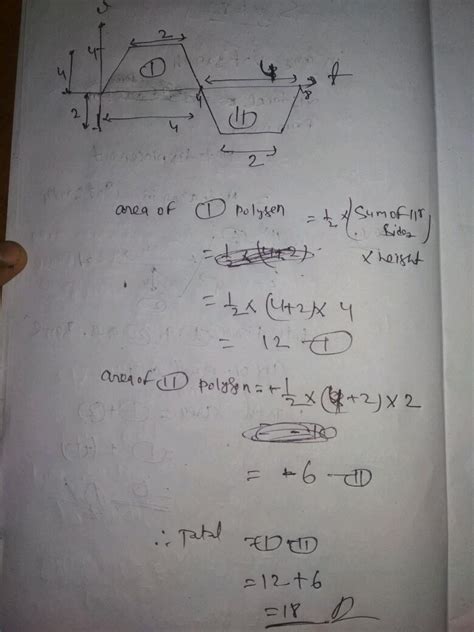 v
2
4
4
Ⓘ
4
t
4
8
2
4
Ⓘ Ⓘ
2
area of Ⓘ Polygen = 1/2 × (Sum of 11r
Sides)
× height
= 1/2 × (4+2) × 4
= 12 — Ⓘ
area of ⓘⓘ Polygen = + 1/2 × (4+2) × 2
= +6 — ⓘⓘ
∴ Total
= 12 + 6
= 18